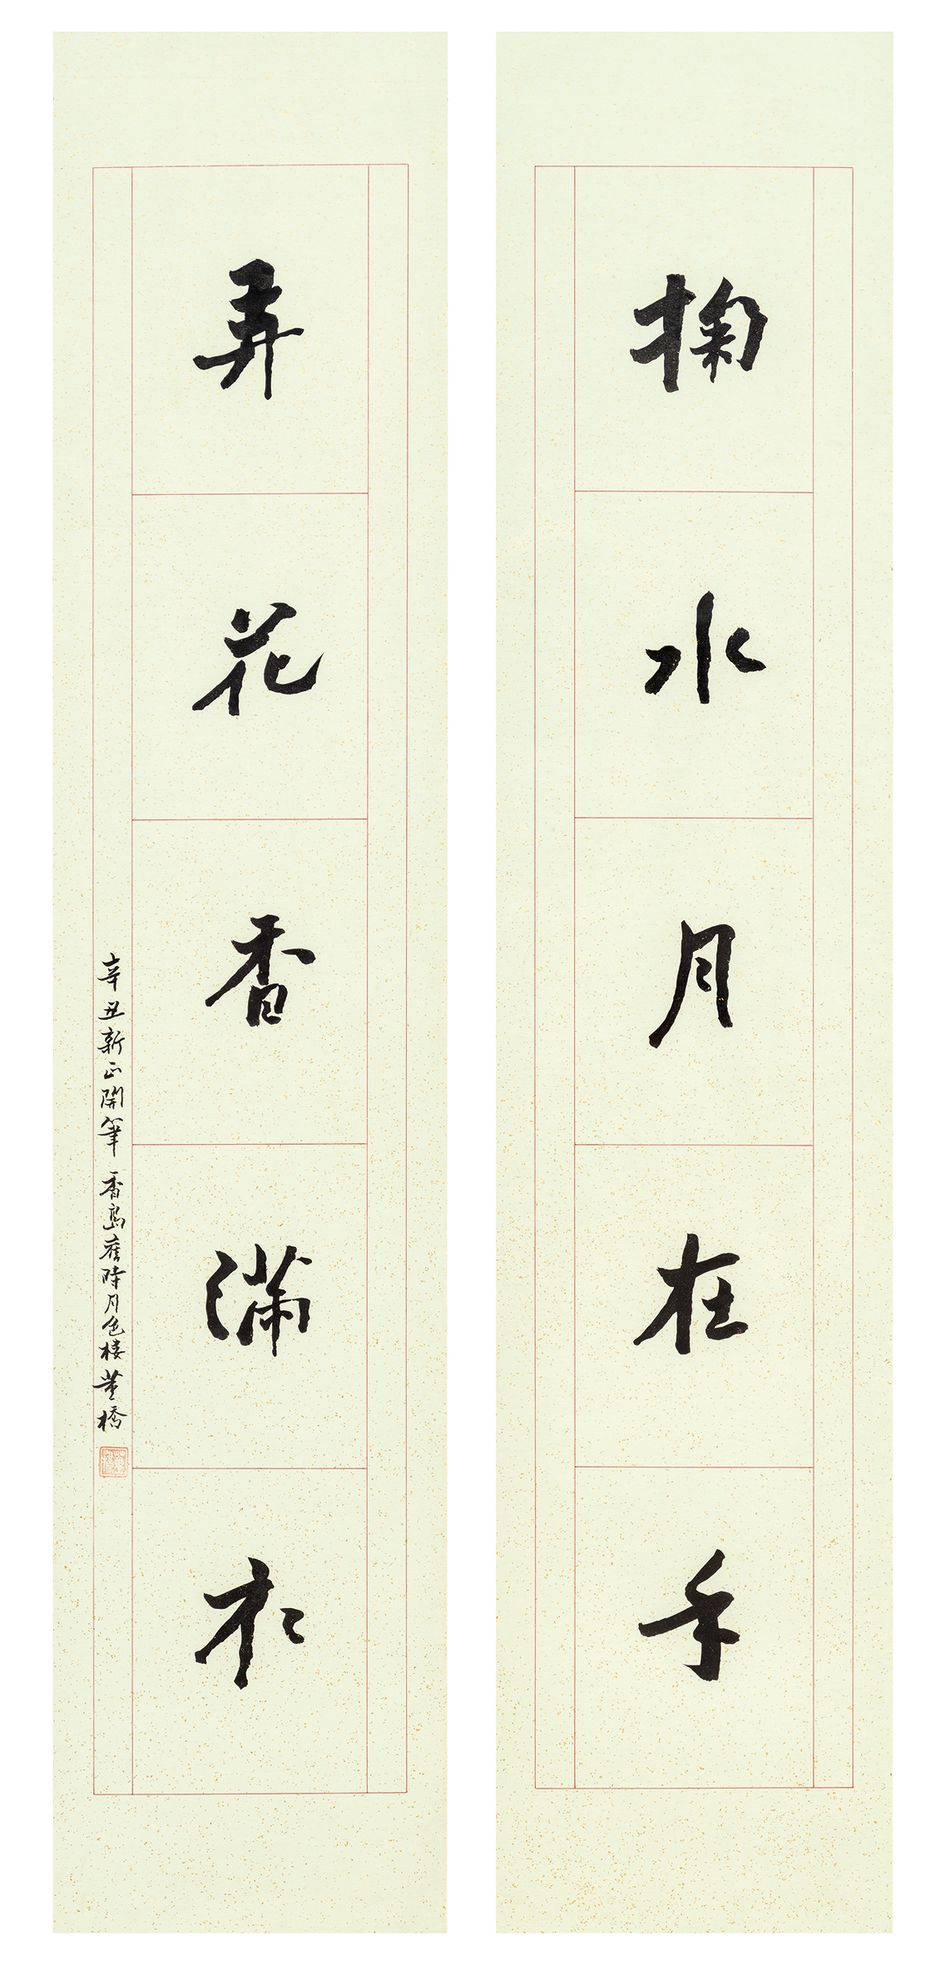 掬水月在手
弄花香滿衣
辛丑新正開筆 香島舊時月色樓董橋